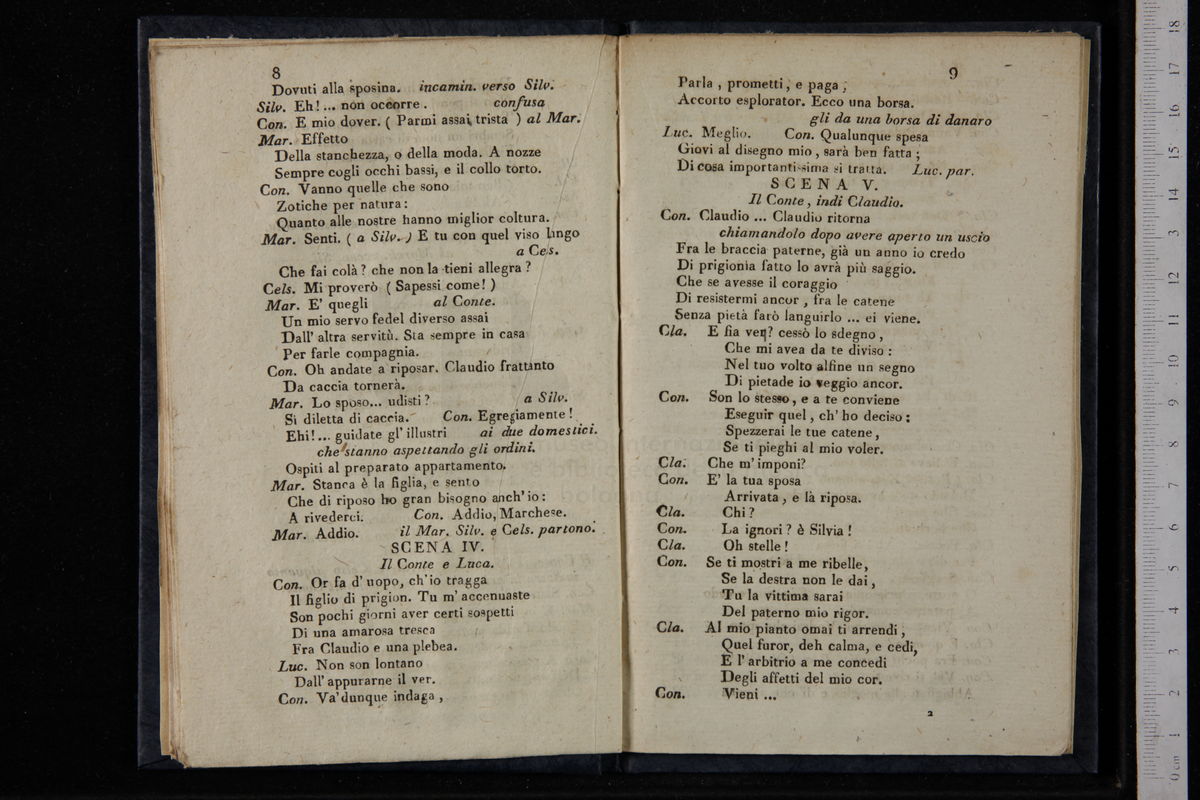 8
Dovuti alla sposina. incamin. verso Silv.
Silv. Eh!... non occorre. confusa
Con. E mio dover. ( Parmi assai trista ) al Mar.
Mar. Effetto
Della stanchezza, o della moda. A nozze
Sempre cogli occhi bassi, e il collo torto.
Con. Vanno quelle che sono
Zotiche per natura:
Quanto alle nostre hanno miglior coltura.
Mar. Senti. ( a Silv. ) E tu con quel viso lungo
a Cels.
Che fai colà? che non la tieni allegra?
Cels. Mi proverò ( Sapessi come! )
Mar. E' quegli al Conte.
Un mio servo fedel diverso assai
Dall' altra servitù. Sta sempre in casa
Per farle compagnia.
Con. Oh andate a riposar. Claudio frattanto
Da caccia tornerà.
Mar. Lo sposo... udisti? a Silv.
Si diletta di caccia. Con. Egregiamente!
Ehi!... guidate gl' illustri ai due domestici.
che stanno aspettando gli ordini.
Ospiti al preparato appartamento.
Mar. Stanca è la figlia, e sento
Che di riposo ho gran bisogno anch' io:
A rivederci. Con. Addio, Marchese.
Mar. Addio. il Mar. Silv. e Cels. partono.
SCENA IV.
Il Conte e Luca.
Con. Or fa d' uopo, ch' io tragga
Il figlio di prigion. Tu m' accenuaste
Son pochi giorni aver certi sospetti
Di una amarosa tresca
Fra Claudio e una plebea.
Luc. Non son lontano
Dall' appurarne il ver.
Con. Va' dunque indaga,
9
Parla, prometti, e paga;
Accorto esplorator. Ecco una borsa.
gli da una borsa di danaro
Luc. Meglio. Con. Qualunque spesa
Giovi al disegno mio, sarà ben fatta;
Di cosa importantissima si tratta. Luc. par.
SCENA V.
Il Conte, indi Claudio.
Con. Claudio ... Claudio ritorna
chiamandolo dopo avere aperto un uscio
Fra le braccia paterne, già un anno io credo
Di prigionia fatto lo avrà più saggio.
Che se avesse il coraggio
Di resistermi ancor, fra le catene
Senza pietà farò languirlo ... ei viene.
Cla. E fia ver? cessò lo sdegno,
Che mi avea da te diviso:
Nel tuo volto alfine un segno
Di pietade io veggio ancor.
Con. Son lo stesso, e a te conviene
Eseguir quel, ch' ho deciso;
Spezzerai le tue catene,
Se ti pieghi al mio voler.
Cla. Che m' imponi?
Con. E' la tua sposa
Arrivata, e là riposa.
Cla. Chi?
Con. La ignori? è Silvia!
Cla. Oh stelle!
Con. Se ti mostri a me ribelle,
Se la destra non le dai,
Tu la vittima sarai
Del paterno mio rigor.
Cla. Al mio pianto omai ti arrendi,
Quel furor, deh calma, e cedi,
E l' arbitrio a me concedi
Degli affetti del mio cor.
Con. Vieni ...
2